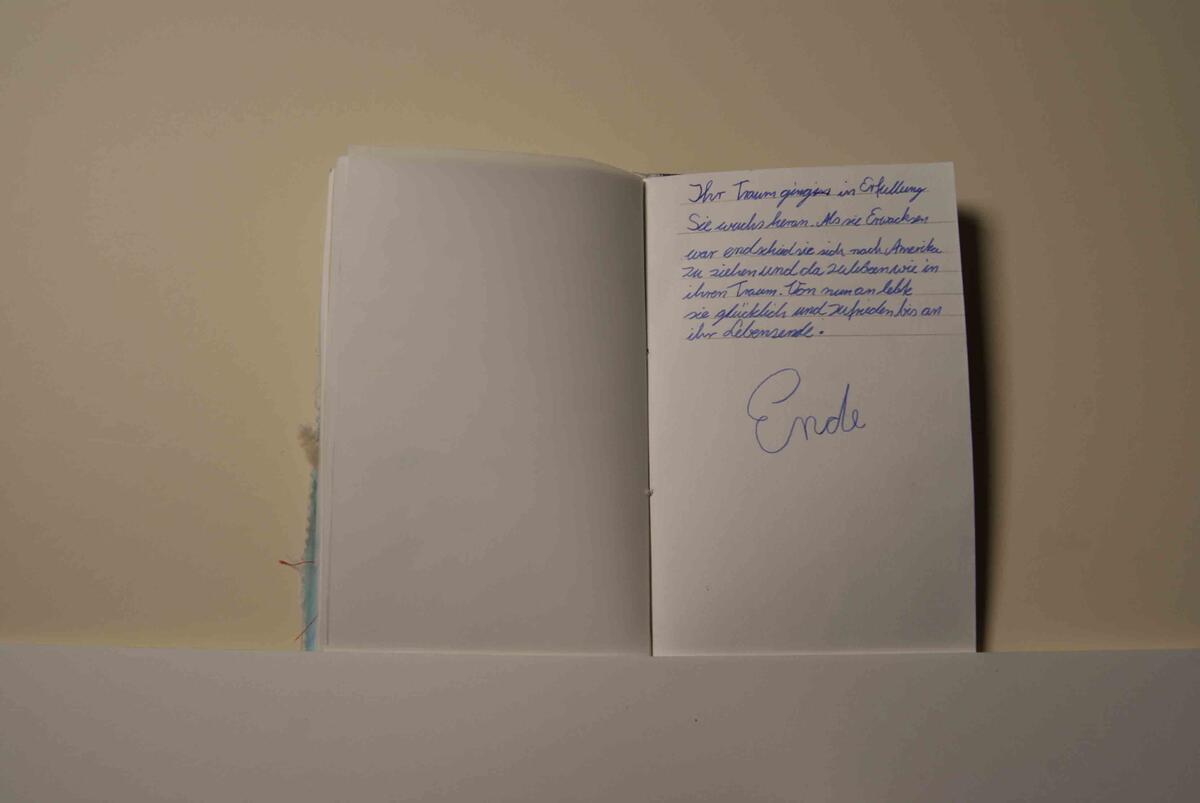 Ihr Traum ging in Erfullung
Sie wuchs heran. Als sie Erwachsen
war endschied sie sich nach Amerika
zu ziehen und da zu leben wie in
ihren Traum. Von nun an lebte
sie glücklich und zufrieden bis an
ihr Lebensende.
Ende